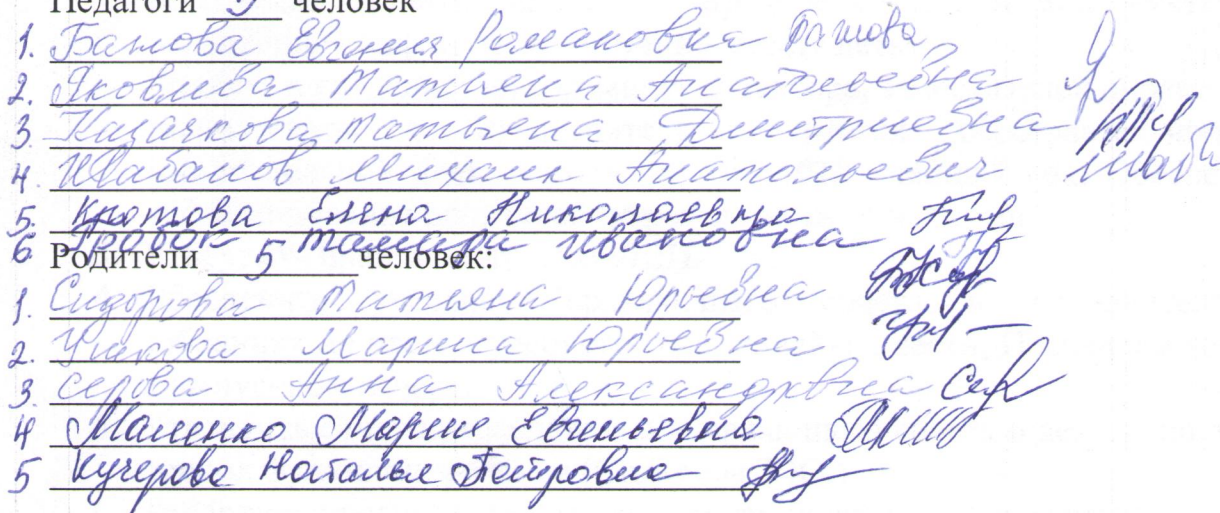 Педагоги человек
1. Евгения Романовна
2. Яковлева Татьяна Анатольевна
3. Казачкова Татьяна Дмитриевна
4. Шабанов Михаил Анатольевич
5. Кротова Елена Николаевна
6 Тамара Ивановна
Родители 5 человек:
1. Сидорова Татьяна Юрьевна
2. Ушакова Марина Юрьевна
3. Серова Анна Александровна
4 Маленко Мария Евгеньевна
5 Кучерова Наталья Петровна